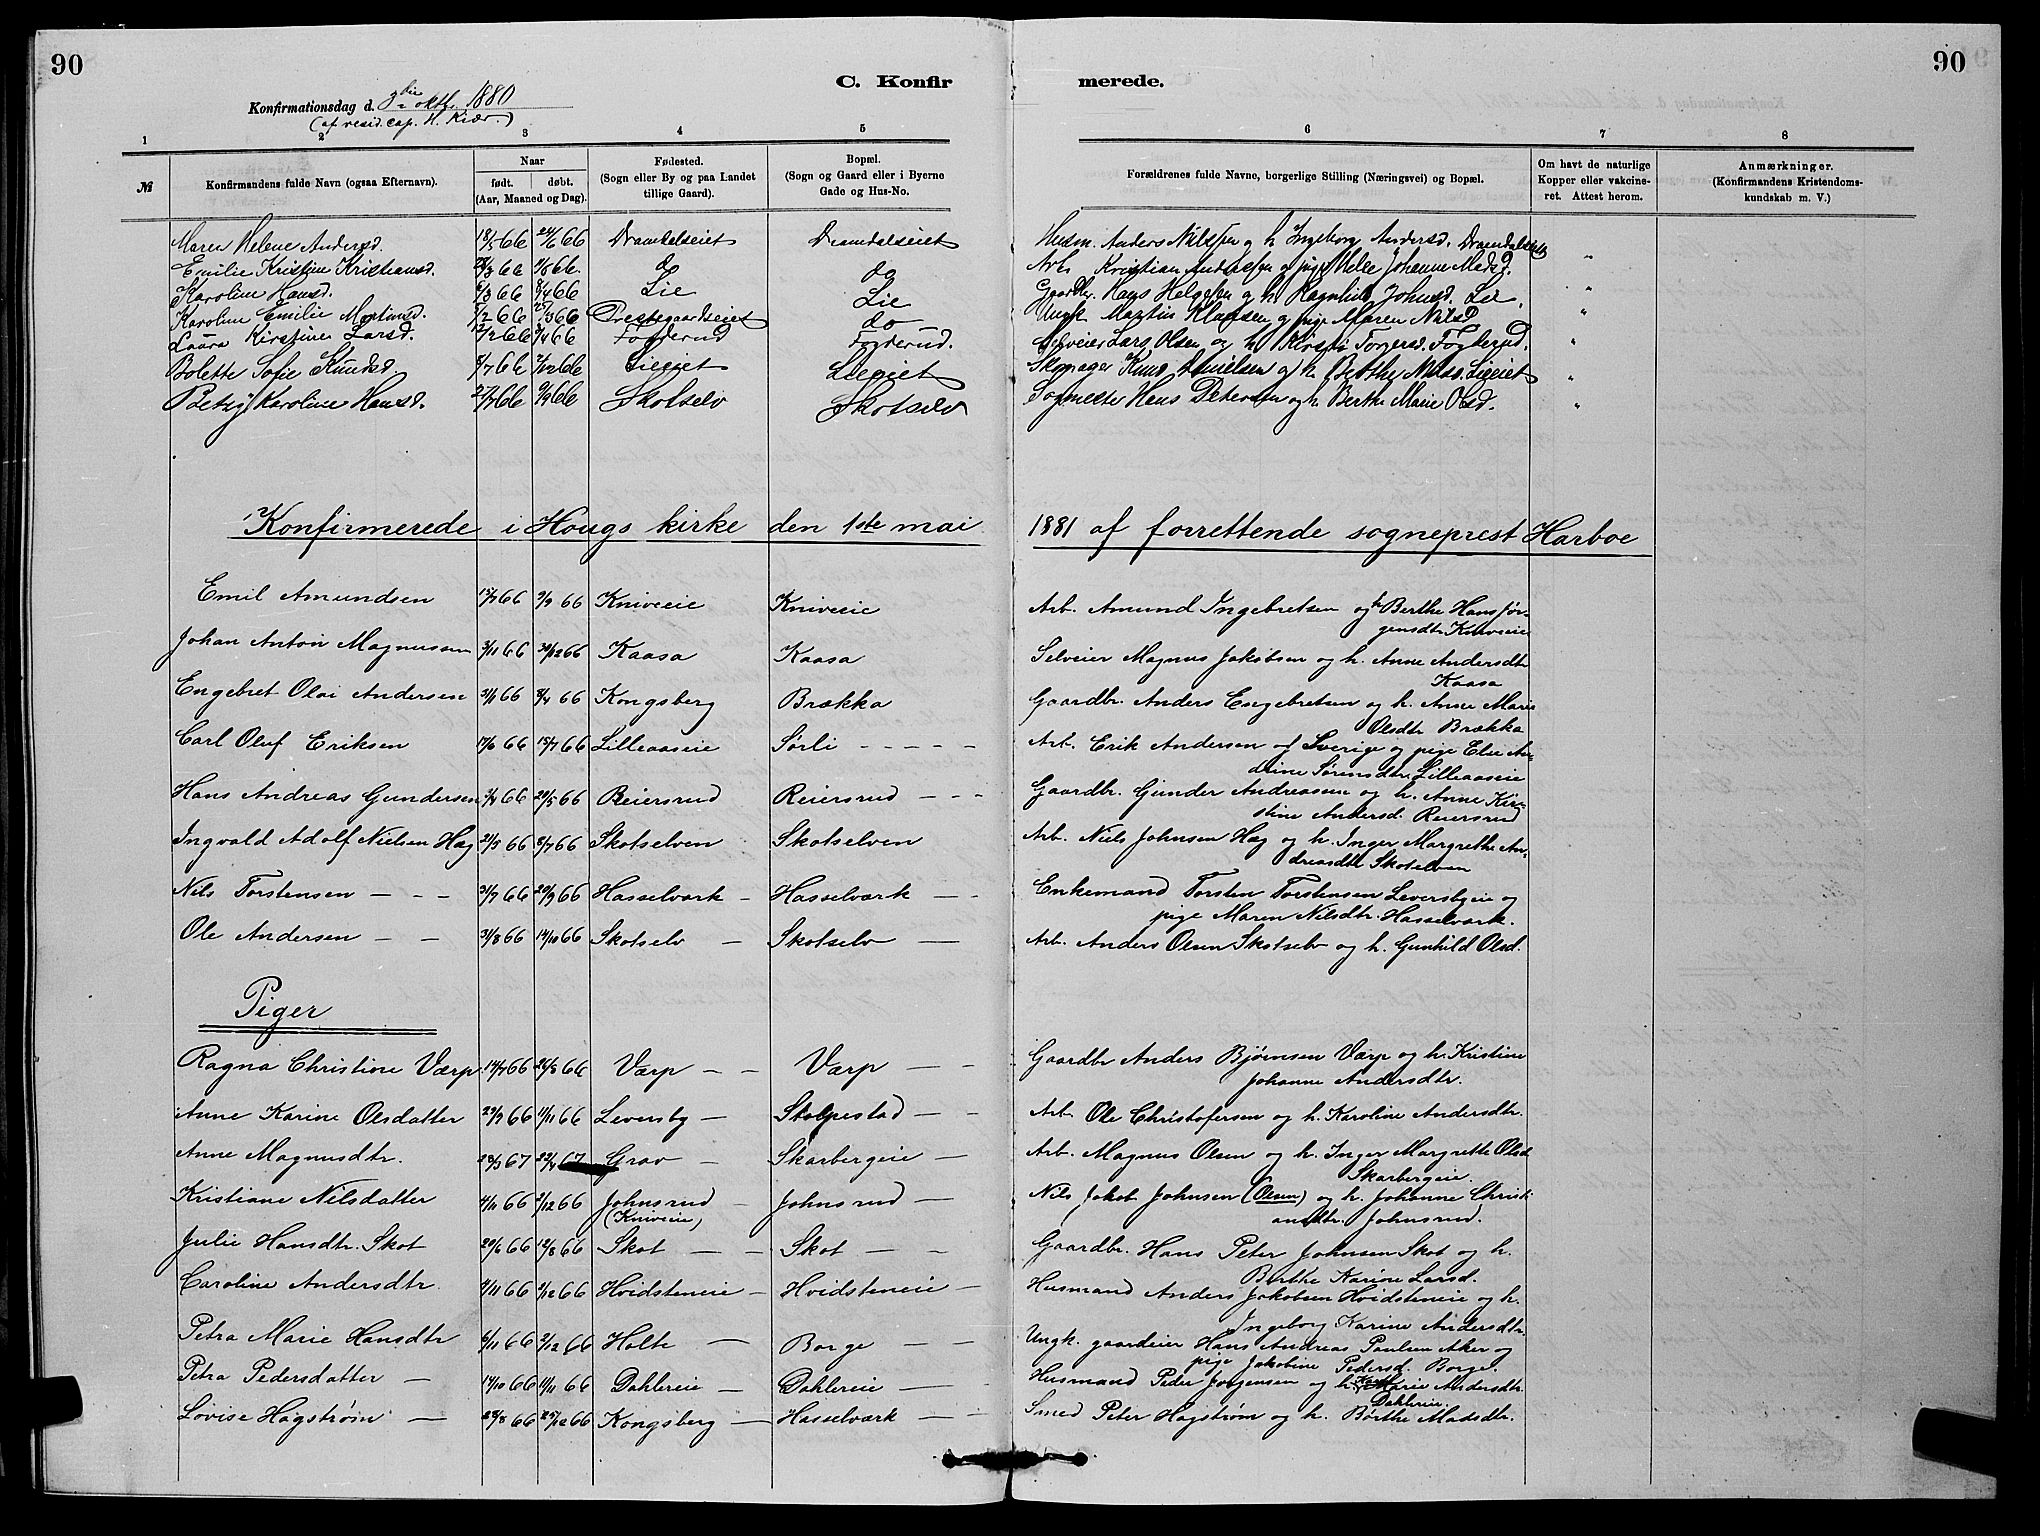 90
90
C. Konfirmerede.
Konfirmationsdag d. okt. 1880
(af resid. cap. H. Kiær.)
1 2 3 4 5 6 7 8
№ Konfirmandens fulde Navn (ogsaa Efternavn). Naar født. døbt. (Aar, Maaned og Dag). Fødested. (Sogn eller By og paa Landet tillige Gaard). Bopæl. (Sogn og Gaard eller i Byerne Gade og Hus-No. Forældrenes fulde Navne, borgerlige Stilling (Næringsvei) og Bopæl. Om havt de naturlige Kopper eller vakcineret. Attest herom. Anmærkninger. (Konfirmandens Kristendomskundskab m. V.)
Maren Helene Andersd. 18/5 66 24/6 66 Dramdalseiet Dramdalseiet Husm. Anders Nilssen og h. Ingeborg Andersd. Dramdalseiet "
Emilie Kristine Kristiansd. 66 66. do do Arb. Kristian Andersen og pige Helle Johanne Madsd. "
Karoline Hansd. /3 66 8/4 66 Lie Lie Gaardbr. Hans Helgesen og h. Ragnhild Johnsd. Lie. "
Karoline Emilie Martinsd. /2 66 /3 66 Prestegaardseiet do Ungk. Martin Klausen og pige Maren Nilsd. "
Laura Kirstine Larsd. 12/2 66 /4 66 Foglerud Foglerud. Selveier Lars Olsen og h. Kirsti Torgersd. Foglerud. "
Bolette Sofie Knudsd. 8/7 66 2/12 66 Lieeiet Lieeiet Skomager Knud og h. Berthe Nilsd. Lieeiet "
Betzy Karoline Hansd. 27/7 66 9/9 66 Skotselv Skotselv Sagmester Hans Petersen og h. Berthe Marie Olsd. "
Konfirmerede i Hougs kirke den 1ste mai 1881 af forrettende sogneprest Harboe
Emil Amundsen 15/7 66 9/9 66 Kniveeie Kniveeie Arb. Amund Ingebretsen og h. Berthe Hansjør-
gensdtr. Kniveeie
Johan Anton Magnussen 3/11 66 30/12 66 Kaasa Kaasa Selveier Magnus Jakobsen og h. Anne Andersdtr.
Kaasa
Engebret Olai Andersen 66 8/4 66 Kongsberg Brækka Gaardbr. Anders Engebretsen og h. Anne Marie
Olsdtr. Brækka
Carl Oluf Eriksen 17/6 66 15/7 66 Lilleaaseie Sørli - - - - - Arb. Erik Andersen af Sverige og pige Elise An-
drine Sørensdtr. Lilleaaseie
Hans Andreas Gundersen 3/4 66 20/5 66 Reiersrud Reiersrud - - - Gaardbr. Gunder Andreassen og h. Anne Kir-
stine Andersd. Reiersrud
Ingvald Adolf Nielsen Hæg 21/5 66 8/7 66 Skotselven Skotselven Arb. Niels Johnsen Hæg og h. Inger Margrethe An-
dreasdtr. Skotselven
Nils Torstensen - - - 31/7 66 20/9 66 Hasselværk - Hasselværk - - Enkemand Torsten Torstensen Leversbyeie og
pige Maren Nilsdtr. Hasselværk.
Ole Andersen - - 31/8 66 14/10 66 Skotselv - Skotselv - Arb. Anders Olsen Skotselv og h. Gunhild Olsd.
Piger
Ragna Christine Værp 14/7 66 26/8 66 Værp - - Værp - - Gaardbr. Anders Bjørnsen Værp og h. Kristine
Johanne Andersdtr.
Anne Karine Olsdatter 29/9 66 11/11 66 Leversby - Stolpestad - - Arb. Ole Christofersen og h. Karoline Andersdtr.
Anne Magnusdtr. 28/3 67 22/4 67 Grav - Skarbergeie - Arb. Magnus Olsen og h. Inger Margrette Olsd.
Skarbergeie.
Kristiane Nilsdatter 4/11 66 2/12 66 Johnsrud - Johnsrud - Nils Jakob Johnsen (Olsen) og h. Johanne Christi-
(Kniveeie) ansdtr. Johnsrud.
Julie Hansdtr. Skot 20/6 66 12/8 66 Skot - - Skot - - Gaardbr. Hans Peter Johnsen Skot og h.
Berthe Karine Larsd.
Caroline Andersdtr. 4/11 66 2/12 66 Hvidsteneie - Hvidsteneie - Husmand Anders Jakobsen Hvidsteneie og h.
Ingeborg Karine Andersdtr.
Petra Marie Hansdtr 6/11 66 2/12 66 Holte - Borge - - Ungk. gaardeier Hans Andreas Paulsen Aker og
pige Jakobine Pedersd. Borge.
Petra Pedersdatter - 14/10 66 11/11 66 Dahlereie - Dahlereie - - Husmand Peder Jørgensen og h. Karen Marie Andersdtr.
Dahlereie
Lovise Hagstrøm - 28/8 66 25/12 66 Kongsberg - Hasselværk - - Smed Peter Hagstrøm og h. Børthe Madsdtr.